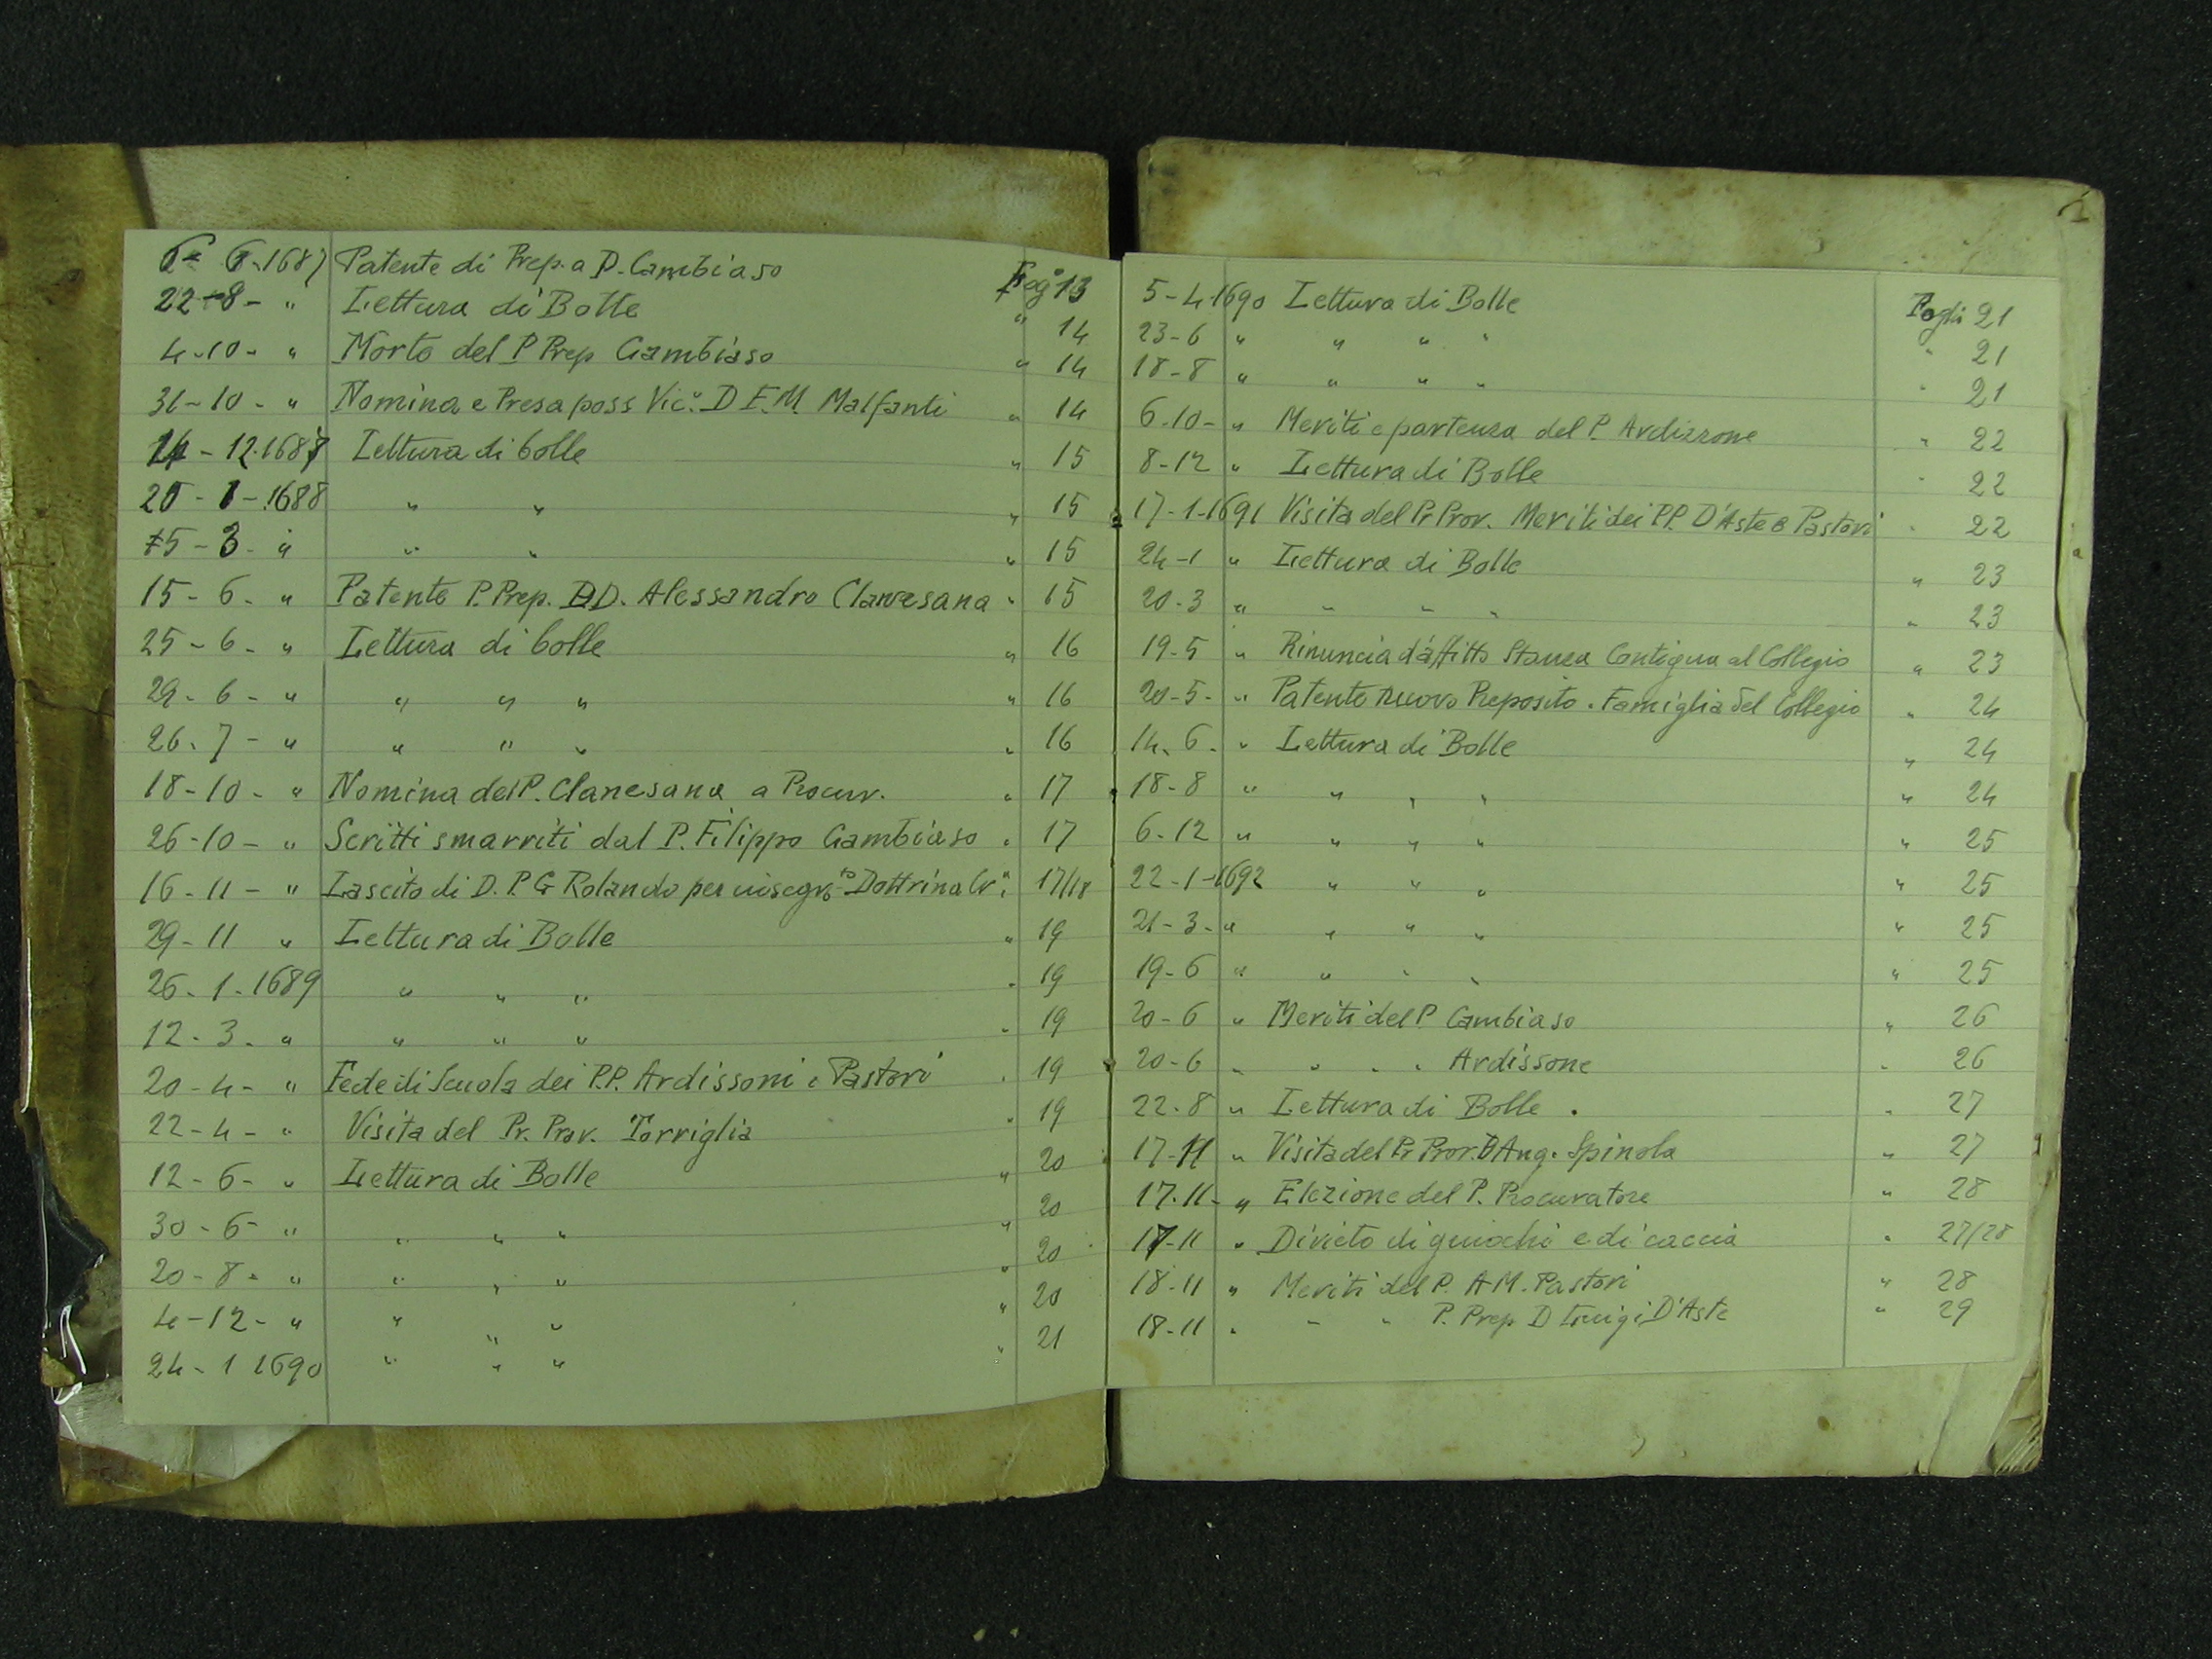 6- 6-1687 Patente di Prep. a D. Cambiaso Fog° 13
22-8- " Lettura di Bolle " 14
4-10- " Morte del P Prep Cambiaso " 14
31-10- " Nomina e Presa poss Vic.° D F.M. Malfanti " 14
14-12.1687 Lettura di bolle " 15
20-1-1688 " " " 15
15-3- " " " " 15
15-6- " Patente P. Prep. D. Alessandro Clavesana " 15
25-6- " Lettura di bolle " 16
29-6- " " " " " 16
26.7- " " " " " 16
18-10- " Nomina del P. Clanesana a Procur. " 17
26-10- " Scritti smarriti dal P. Filippo Cambiaso " 17
16-11- " Lascito di D. P. G Rolando per insegn.to Dottrina Cr.a " 17/18
29-11 " Lettura di Bolle " 19
26.1.1689 " " " " 19
12.3. " " " " " 19
20-4- " Fede di Scuola dei P.P. Ardissoni e Pastori " 19
22-4- " Visita del Pr. Prov. Torriglia " 19
12-6- " Lettura di Bolle " 20
30-6- " " " " " 20
20-8- " " " " " 20
4-12- " " " " " 20
24-1 1690 " " " " 21
5-4-1690 Lettura di Bolle Fogli 21
23-6 " " " " " 21
18-8 " " " " " 21
6.10- " Meriti e partenza del P. Ardizzone " 22
8-12 " Lettura di Bolle " 22
17-1-1691 Visita del Pr Prov. Meriti dei P.P. D'Aste e Pastori " 22
24-1 " Lettura di Bolle " 23
20.3 " " " " " 23
19-5 " Rinuncia d'affitto Stanza Contigua al Collegio " 23
20-5- " Patente nuovo Preposito. Famiglia del Collegio " 24
14.6. " Lettura di Bolle " 24
18-8 " " " " " 24
6-12 " " " " " 25
22-1-1692 " " " " 25
21-3- " " " " " 25
19-6 " " " " " 25
20-6 " Meriti del P Cambiaso " 26
20-6 " " " " Ardissone " 26
22.8 " Lettura di Bolle . " 27
17-11 " Visita del Pr Prov. D Ang. Spinola " 27
17.11- " Elezione del P. Procuratore " 28
17-11 " Divieto di giuochi e di caccia " 27/28
18-11 " Meriti del P. A M. Pastori " 28
18-11 " " " P. Prep D Luigi D'Aste " 29